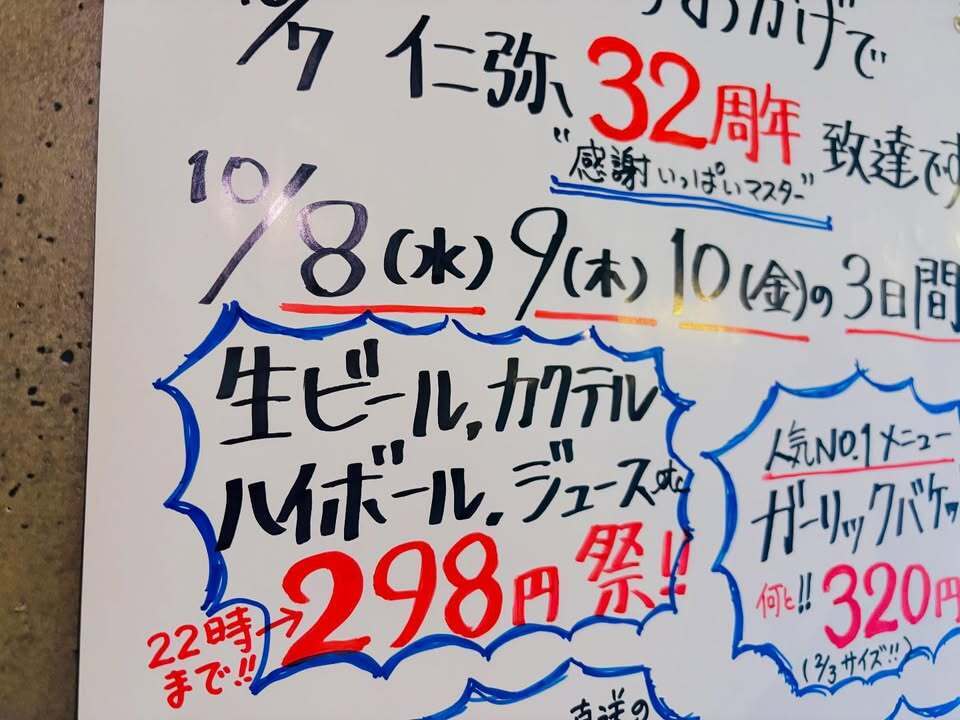 おかげで
10/7 仁弥、32周年 致達です
“感謝いっぱいマスター”
10/8(水) 9(木) 10(金)の3日間
生ビール,カクテル
ハイボール,ジュースetc
298円 祭!!
22時→
まで!!
人気NO.1メニュー
ガーリックバケッ
何と!! 320円
(2/3サイズ!!)
直送の